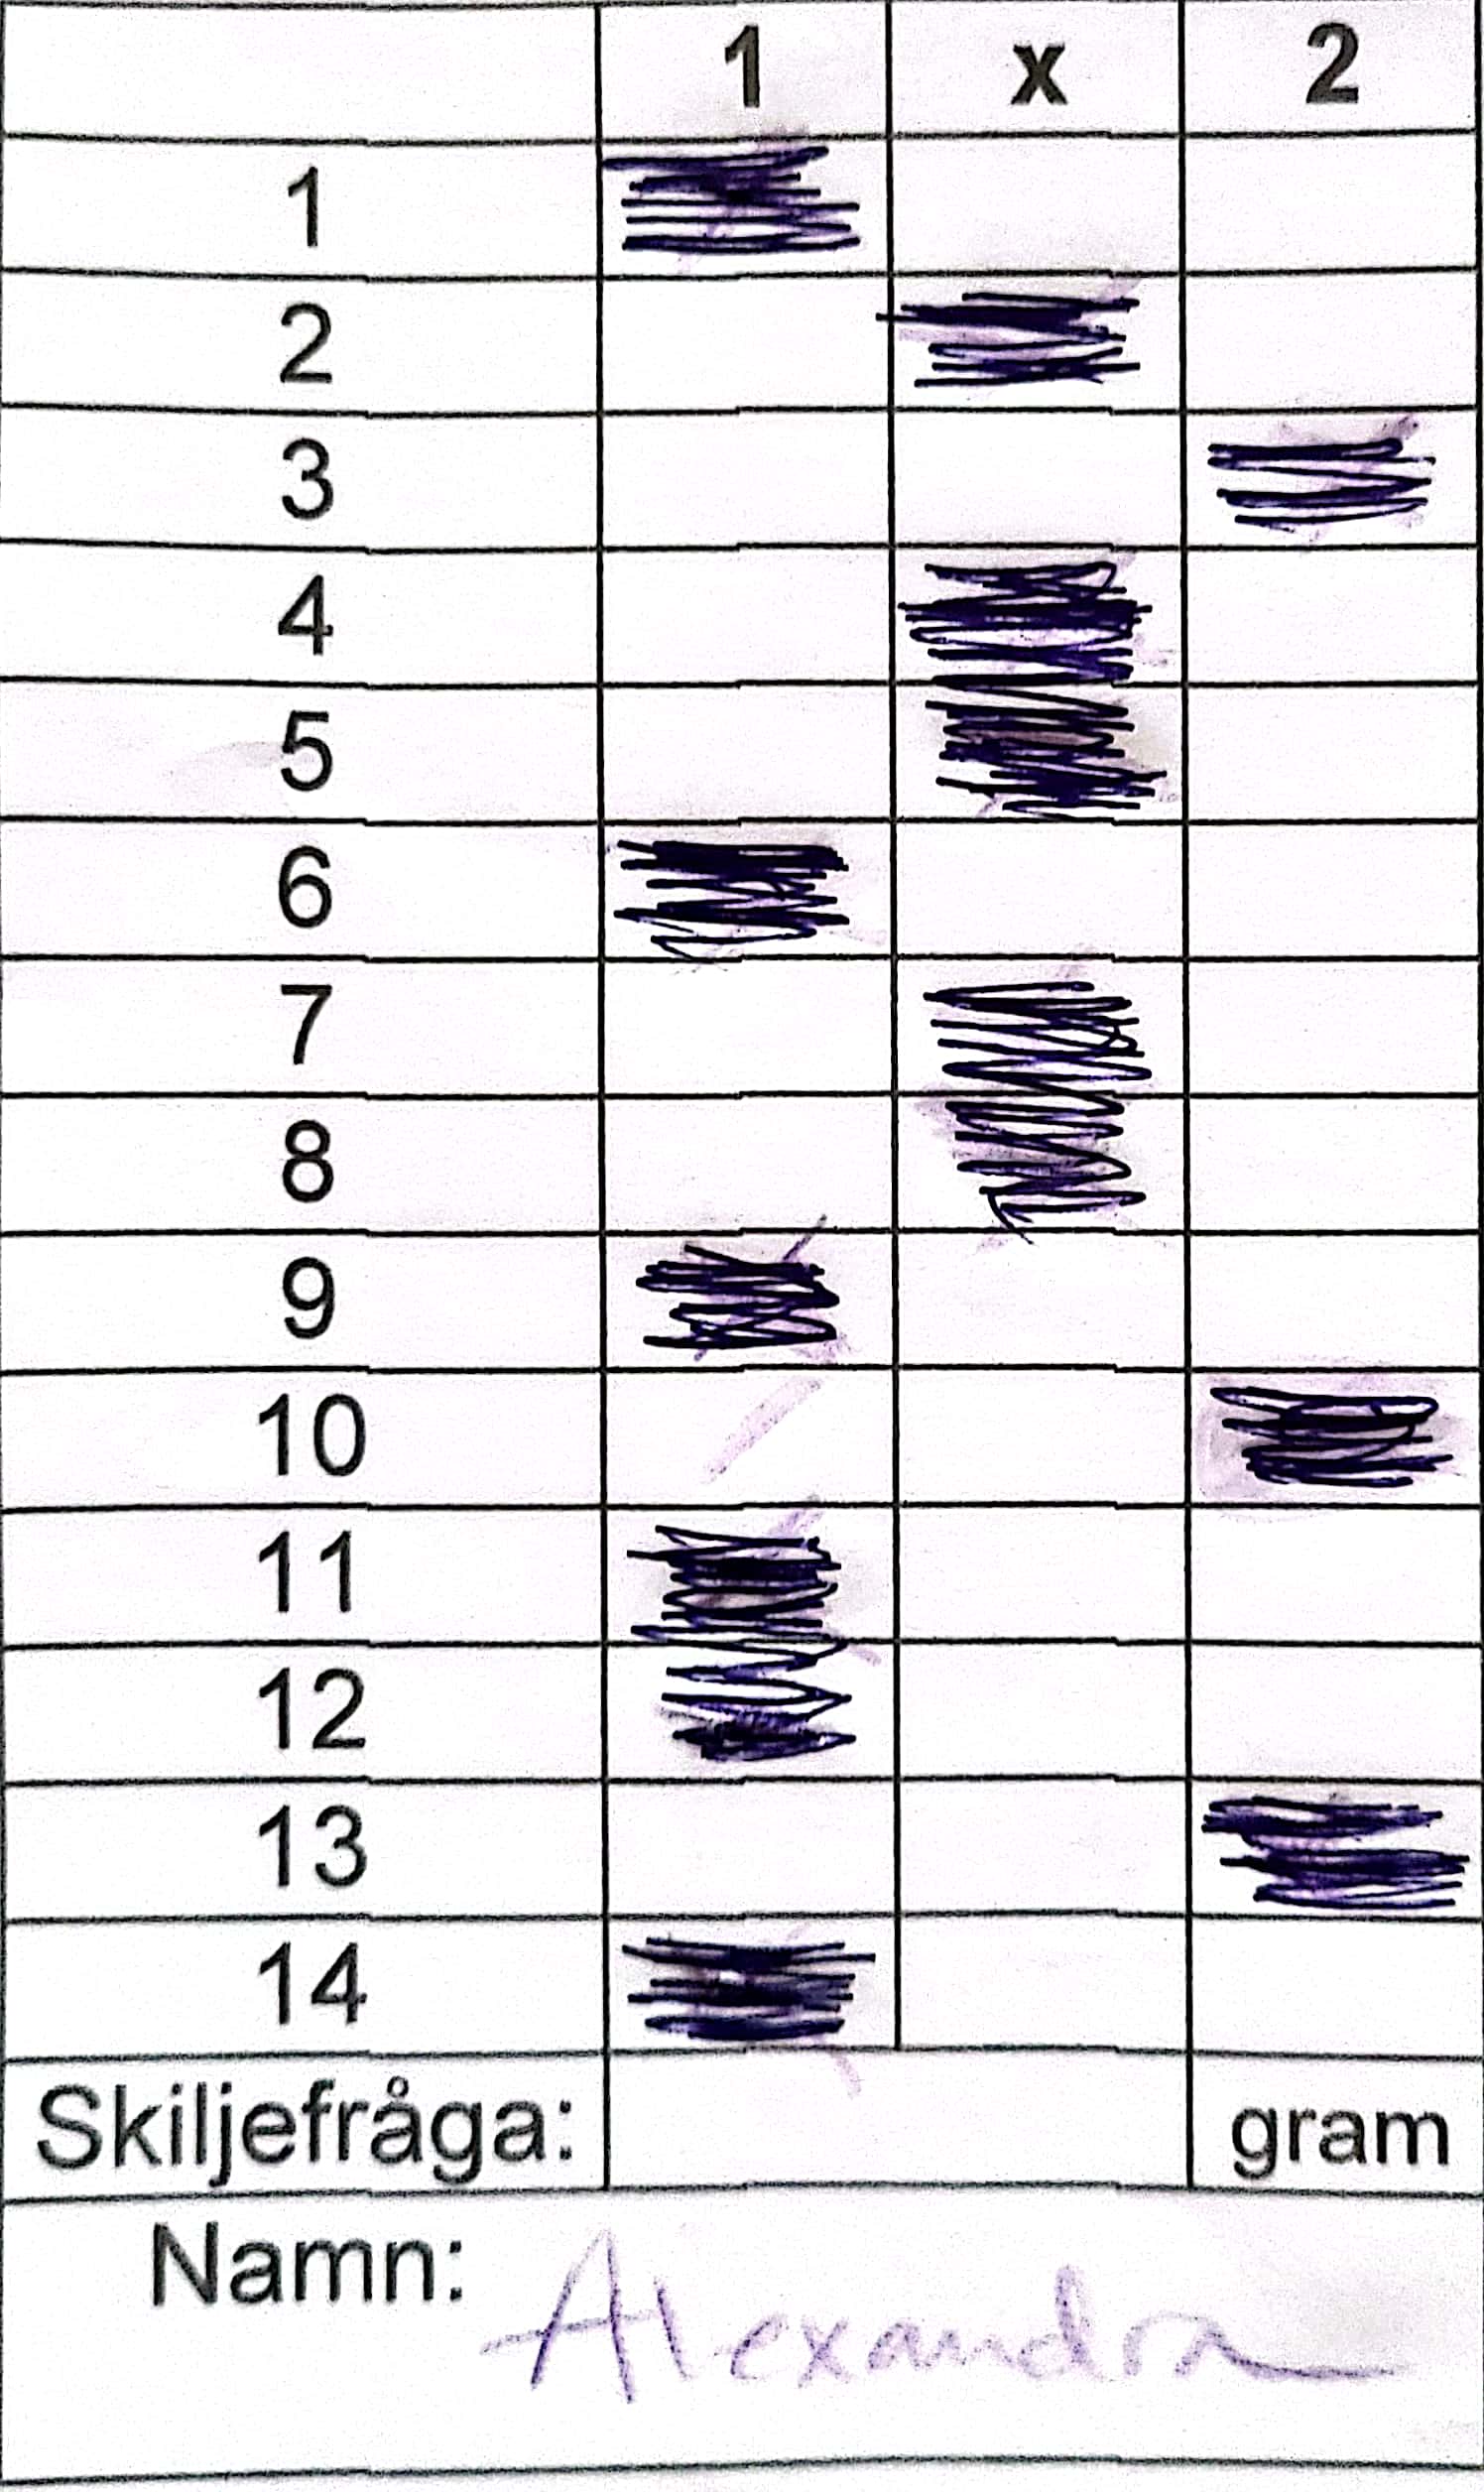 1 x 2
1
2
3
4
5
6
7
8
9
10
11
12
13
14
Skiljefråga: gram
Namn: Alexandra